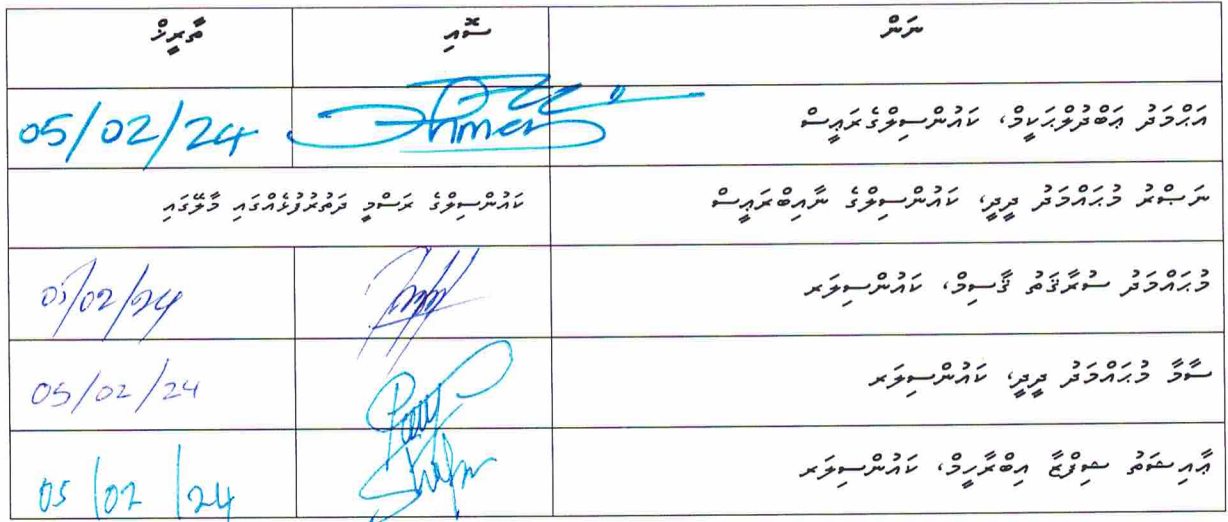 ނަން ސޮއި ތާރީޚް
އަޙްމަދު ޢަބްދުލްޙަކީމް، ކައުންސިލްގެރައީސް 05/02/24
ނަޞްރު މުޙައްމަދު ދީދީ، ކައުންސިލްގެ ނާއިބްރަޢީސް ކައުންސިލްގެ ރަސްމީ ދަތުރުފުޅެއްގައި މާލޭގައި
މުޙައްމަދު ސުރާޤަތު ޤާސިމް، ކައުންސިލަރ 05/02/24
ސާމާ މުޙައްމަދު ދީދީ، ކައުންސިލަރ 05/02/24
ޢާއިޝަތު ޝިފްޒާ އިބްރާހީމް، ކައުންސިލަރ 05/02/24